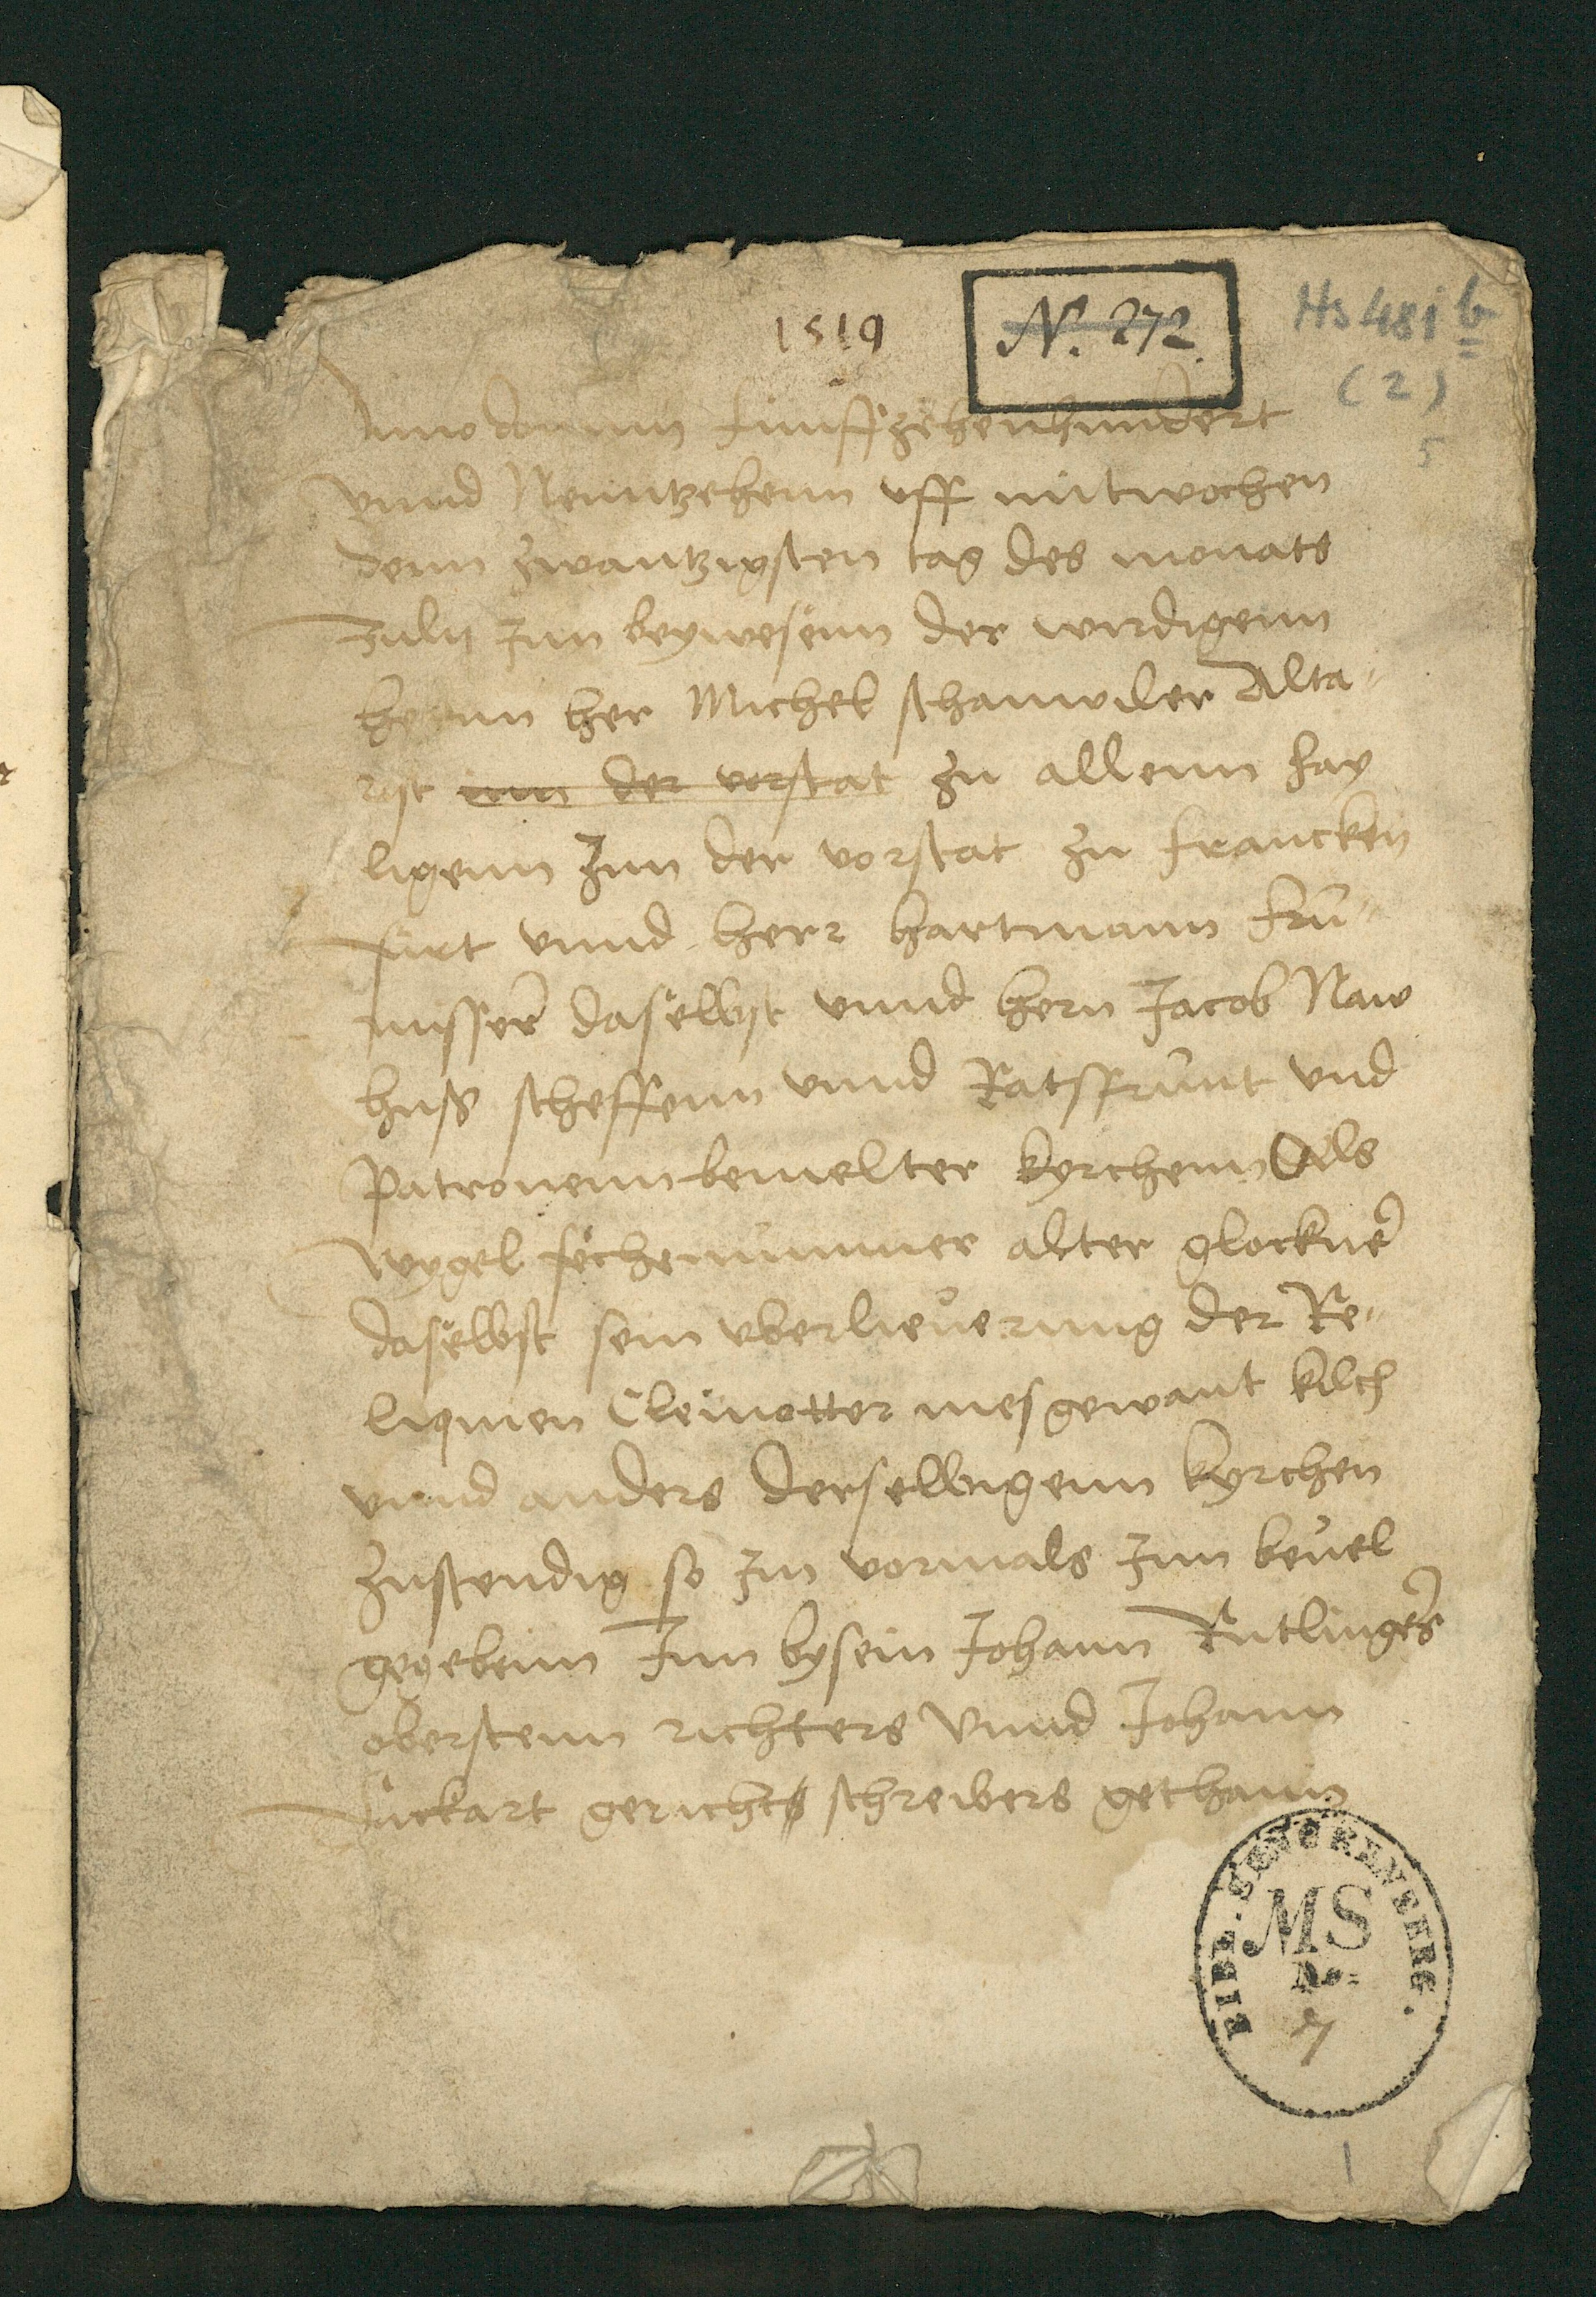 1519
N°. 272.
Hs 481 b
(2)
5
Anno domini funffzehenhundert
vnnd Neuntzehenn vff mitwochen
denn zwantzigsten tag des monats
Julij Jnn beywesenn der wirdigenn
hernn her Michel schanwiler Alta-
rist inn der vorstat zu allenn hay
ligenn Jnn der vorstat zu francken
furt vnnd herr hartmann fru-
messer daselbst vnnd hern Jacob Naw
huß scheffenn vnnd Ratsfrunt vnd
Patronenn bemelter kyrchenn Als
wygel alter glockner
daselbst sein vberlieuerung der Re-
liquien Cleinotter mesgewant kilch
vnnd anders derselbigenn kyrchen
zustendig so Jm vormals Jnn beuel
gegebenn Jnn bysein Johann Rutlingers
oberstenn richters Vnnd Johann
fickart gerichts schreibers gethann
BIBL. SENCKENBERG.
MS
No=
7
1